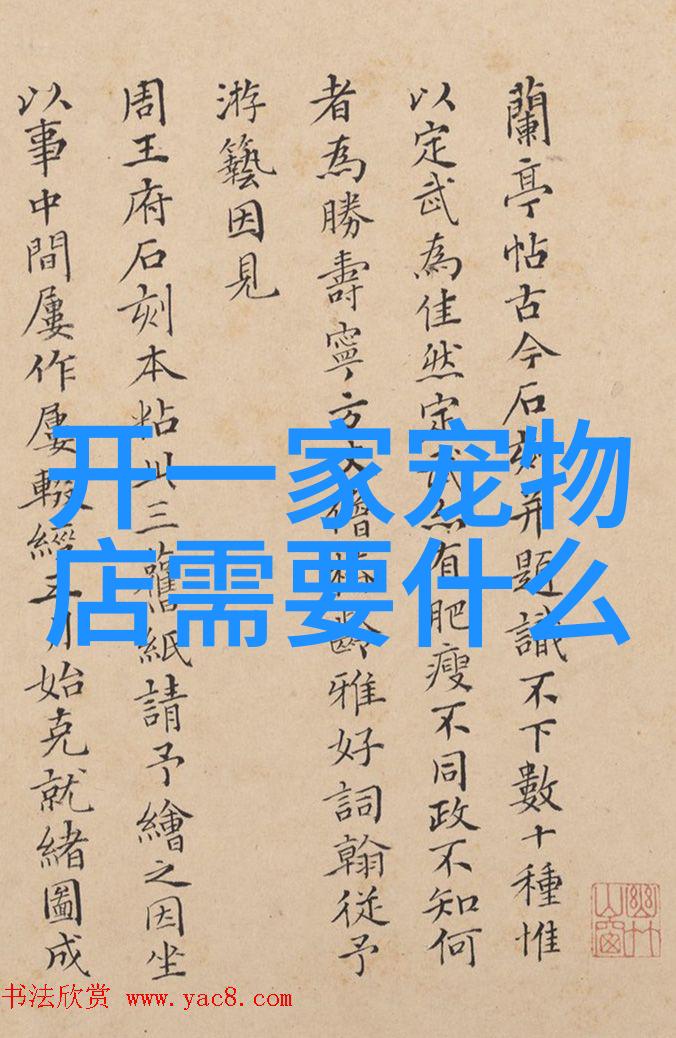 蘭亭帖古今石刻并題識不下數十種惟
以定武為佳然定武亦有肥瘦不同政不知何
者為勝壽寧方丈僧齡雅好詞翰從予
游藝因見
周王府石刻本粘此三舊紙請予繪之因坐
以事中間屢作屢輟經五月始克就緒圖成
幽竹山窗
开一家宠物
店需要什么
书法欣赏 www.yac8.com